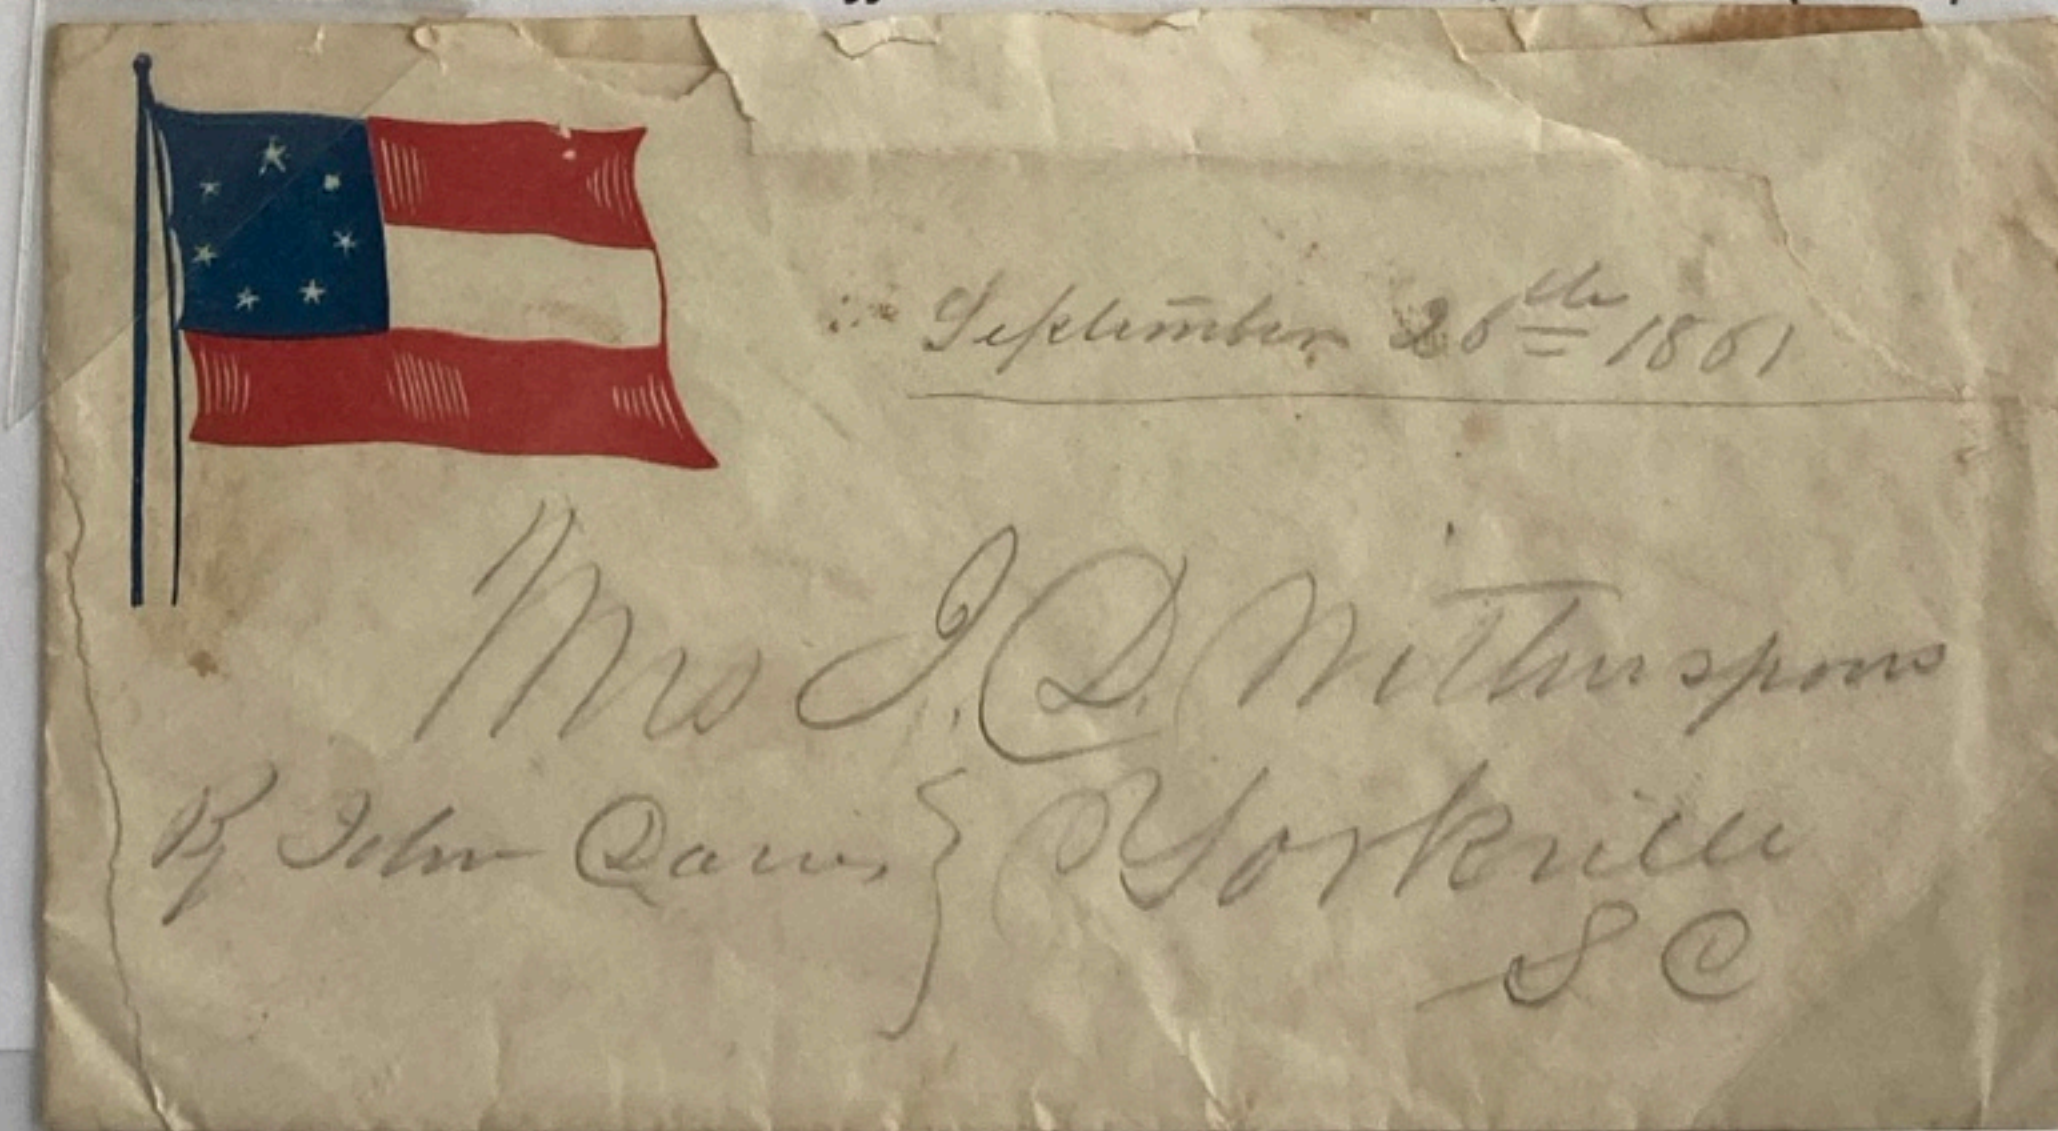 September 26th 1861
Mrs J. D. Witherspoon
By John Davis } Yorkville
S C